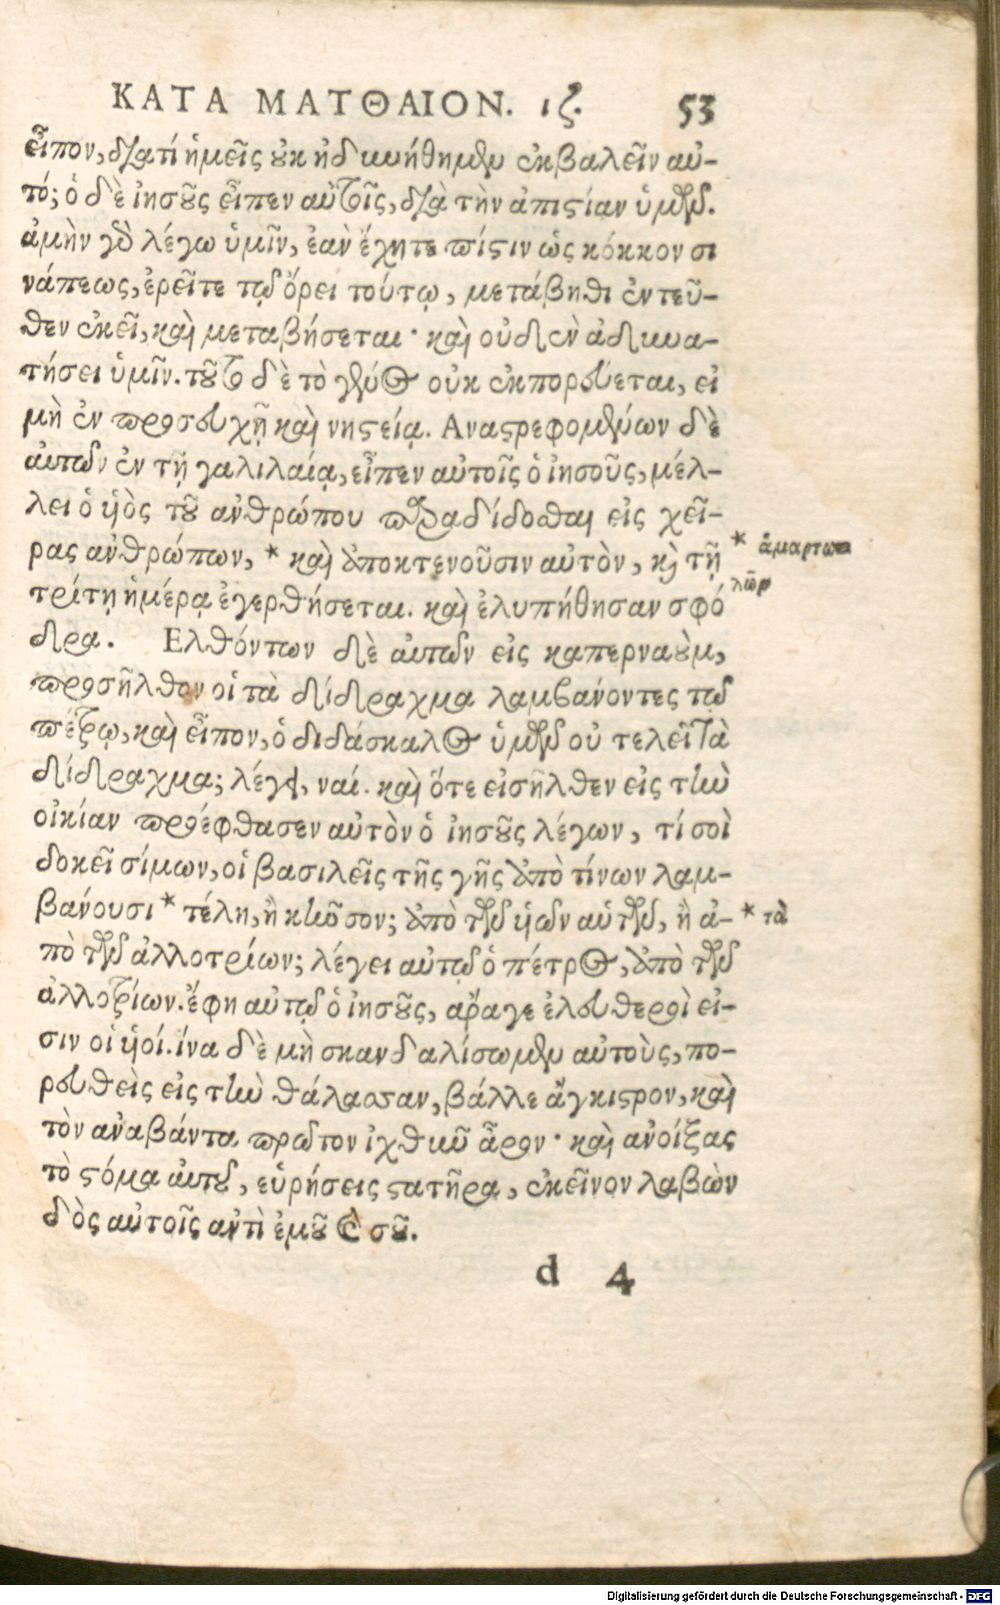 ΚΑΤΑ ΜΑΤΘΑΙΟΝ. ιζ. 53
εἶπον, διατί ἡμεῖς οὐκ ἠδυνήθημεν ἐκβαλεῖν αὐ-
τό; ὁ δὲ ἰησοῦς εἶπεν αὐτοῖς, διὰ τὴν ἀπιστίαν ὑμῶν.
ἀμὴν γὰρ λέγω ὑμῖν, ἐὰν ἔχητε πίστιν ὡς κόκκον σι
νάπεως, ἐρεῖτε τῷ ὄρει τούτῳ, μετάβηθι ἐντεῦ-
θεν ἐκεῖ, καὶ μεταβήσεται· καὶ οὐδὲν ἀδυνα-
τήσει ὑμῖν. τοῦτο δὲ τὸ γένος οὐκ ἐκπορεύεται, εἰ
μὴ ἐν προσευχῇ καὶ νηστείᾳ. Αναστρεφομένων δὲ
αὐτῶν ἐν τῇ γαλιλαίᾳ, εἶπεν αὐτοῖς ὁ ἰησοῦς, μέλ-
λει ὁ υἱὸς τοῦ ἀνθρώπου παραδίδοσθαι εἰς χεῖ-
ρας ἀνθρώπων, * καὶ ἀποκτενοῦσιν αὐτὸν, καὶ τῇ
* ἁμαρτω
λῶν
τρίτῃ ἡμέρᾳ ἐγερθήσεται. καὶ ἐλυπήθησαν σφό
δρα. Ελθόντων δὲ αὐτῶν εἰς καπερναοὺμ,
προσῆλθον οἱ τὰ δίδραχμα λαμβάνοντες τῷ
πέτρῳ, καὶ εἶπον, ὁ διδάσκαλος ὑμῶν οὐ τελεῖ τὰ
δίδραχμα; λέγει, ναί. καὶ ὅτε εἰσῆλθεν εἰς τὴν
οἰκίαν προέφθασεν αὐτὸν ὁ ἰησοῦς λέγων, τί σοὶ
δοκεῖ σίμων, οἱ βασιλεῖς τῆς γῆς ἀπὸ τίνων λαμ-
βάνουσι * τέλη, ἢ κῆνσον; ἀπὸ τῶν υἱῶν αὑτῶν, ἢ ἀ-
* τὰ
πὸ τῶν ἀλλοτρίων; λέγει αὐτῷ ὁ πέτρος, ἀπὸ τῶν
ἀλλοτρίων. ἔφη αὐτῷ ὁ ἰησοῦς, ἄραγε ἐλεύθεροὶ εἰ-
σιν οἱ υἱοί. ἵνα δὲ μὴ σκανδαλίσωμεν αὐτοὺς, πο-
ρευθεὶς εἰς τὴν θάλασσαν, βάλλε ἄγκιστρον, καὶ
τὸν ἀναβάντα πρῶτον ἰχθυῦ ἆρον· καὶ ἀνοίξας
τὸ στόμα αὐτοῦ, εὑρήσεις στατῆρα, ἐκεῖνον λαβὼν
δὸς αὐτοῖς ἀντὶ ἐμοῦ καὶ σοῦ.
d 4
Digitalisierung gefördert durch die Deutsche Forschungsgemeinschaft - DFG